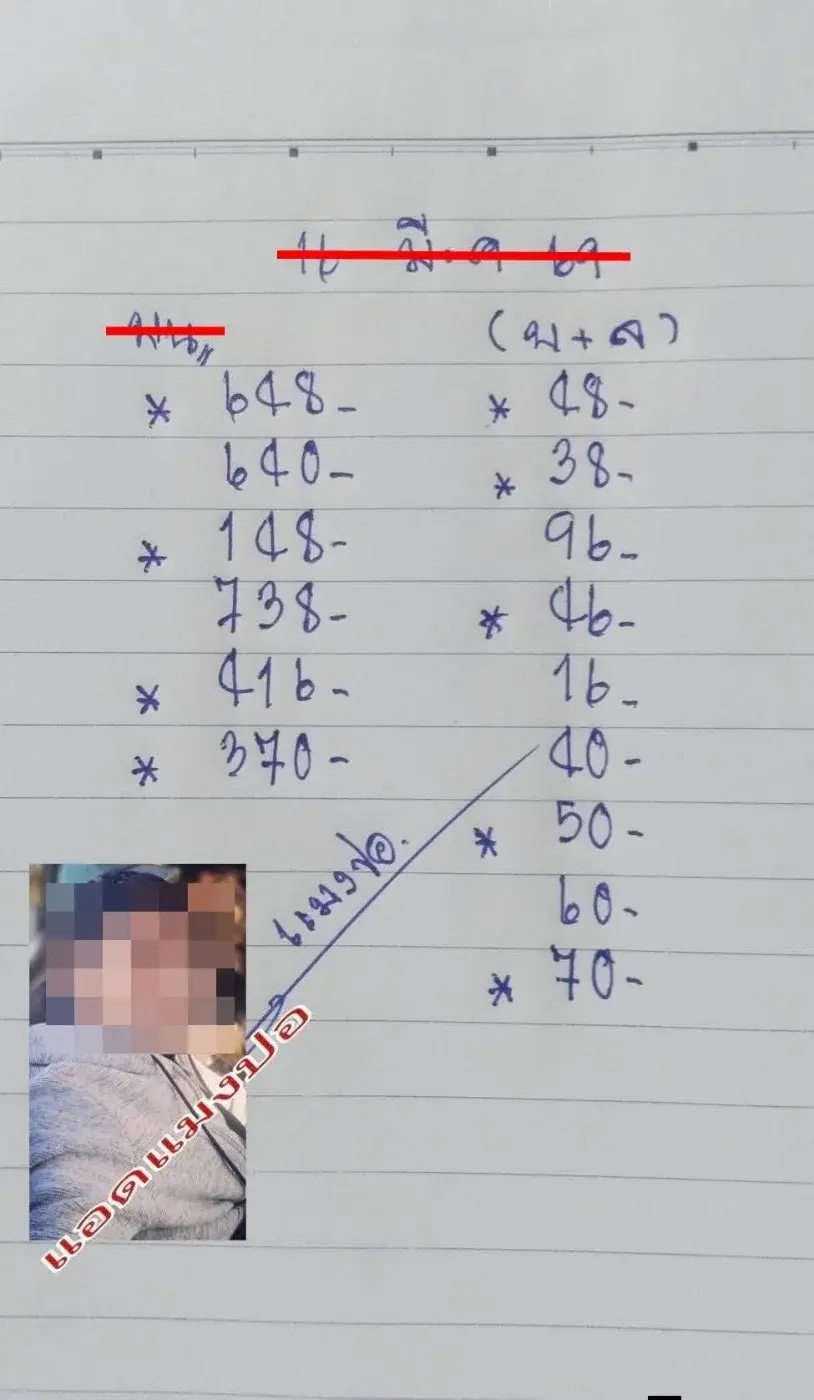 (บ+ล)
* 648-
640-
* 148-
738-
* 416-
* 370-
* 48-
* 38-
96-
* 46-
16-
40-
* 50-
60-
* 70-
แมงปอ.
แอดแมงปอ